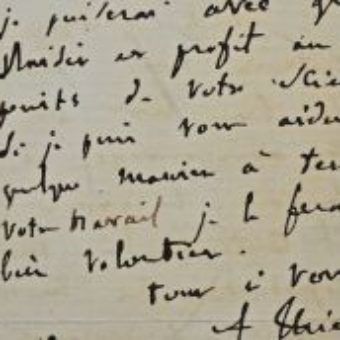 je puiserai avec gr
plaisir et profit au
puits de votre scie
Si je puis vous aider
quelque manière à ter
votre travail je le fera
bien volontiers.
tout à vou
A Thie